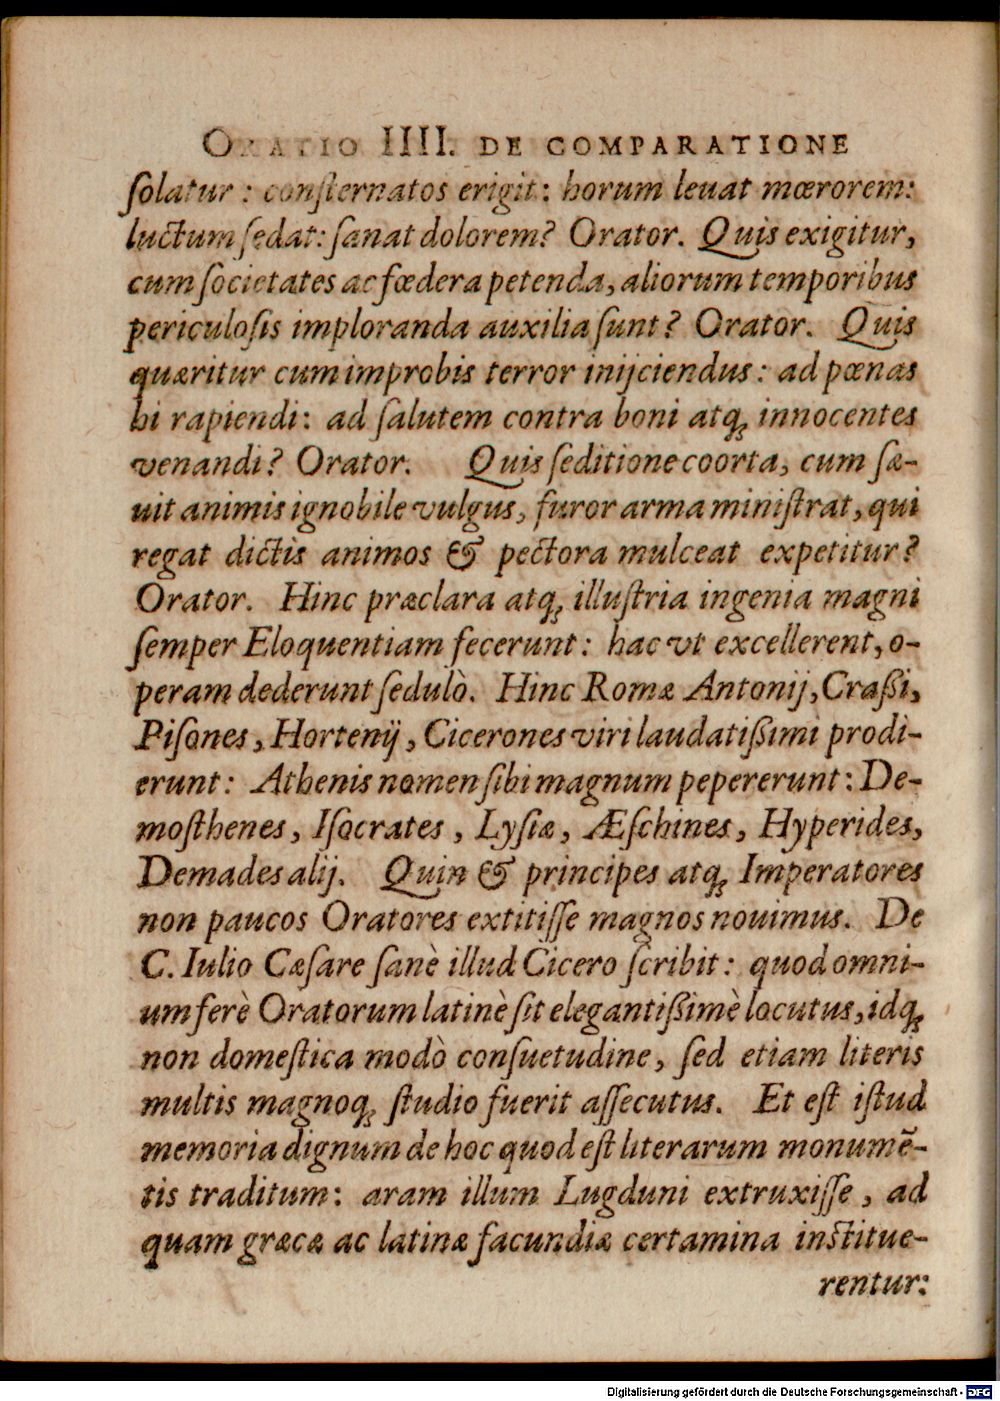 ORATIO IIII. DE COMPARATIONE
ſolatur : conſternatos erigit: horum leuat mœrorem:
luctum ſedat: ſanat dolorem? Orator. Quis exigitur,
cum ſocietates ac fœdera petenda, aliorum temporibus
periculoſis imploranda auxilia ſunt? Orator. Quis
quæritur cum improbis terror inijciendus: ad pœnas
hi rapiendi: ad ſalutem contra boni atq́ꝫ innocentes
venandi? Orator. Quis ſeditione coorta, cum ſæ-
uit animis ignobile vulgus, furor arma miniſtrat, qui
regat dictis animos & pectora mulceat expetitur?
Orator. Hinc præclara atqꝫ illuſtria ingenia magni
ſemper Eloquentiam fecerunt: hac vt excellerent, o-
peram dederunt ſedulò. Hinc Romæ Antonij, Craßi,
Piſones, Hortenij, Cicerones viri laudatißimi prodi-
erunt: Athenis nomen ſibi magnum pepererunt: De-
moſthenes, Iſocrates, Lyſiæ, Æſchines, Hyperides,
Demades alij. Quin & principes atqꝫ Imperatores
non paucos Oratores extitiſſe magnos nouimus. De
C. Iulio Cæſare ſanè illud Cicero ſcribit: quod omni-
um ferè Oratorum latinè ſit elegantißimè locutus, idqꝫ
non domeſtica modò conſuetudine, ſed etiam literis
multis magnoqꝫ ſtudio fuerit aſſecutus. Et eſt iſtud
memoria dignum de hoc quod eſt literarum monumē-
tis traditum: aram illum Lugduni extruxiſſe, ad
quam græcæ ac latinæ facundiæ certamina inſtitue-
rentur:
Digitalisierung gefördert durch die Deutsche Forschungsgemeinschaft - DFG